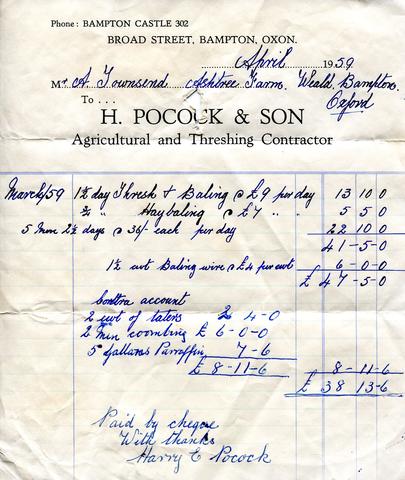 Phone : BAMPTON CASTLE 302
BROAD STREET, BAMPTON, OXON.
April 1959
Mr A Townsend Ashtree Farm. Weald, Bampton.
To . . . Oxford
H. POCOCK & SON
Agricultural and Threshing Contractor
March/59 1½ day Thresh + Baling @ £9 per day 13 10 0
¾ " Haybaling @ £7 " " 5 5 0
5 Men 2½ days @ 36/- each per day 22 10 0
41-5-0
1½ cwt Baling wire @ £4 per cwt 6-0-0
£ 47-5-0
Conttra account
2 cwt of taters 2 4-0
2 Men coombing £ 6-0-0
5 Gallons Parraffin 7-6
£ 8-11-6 8-11-6
£ 38 13-6
Paid by cheque
With thanks
Harry C Pocock